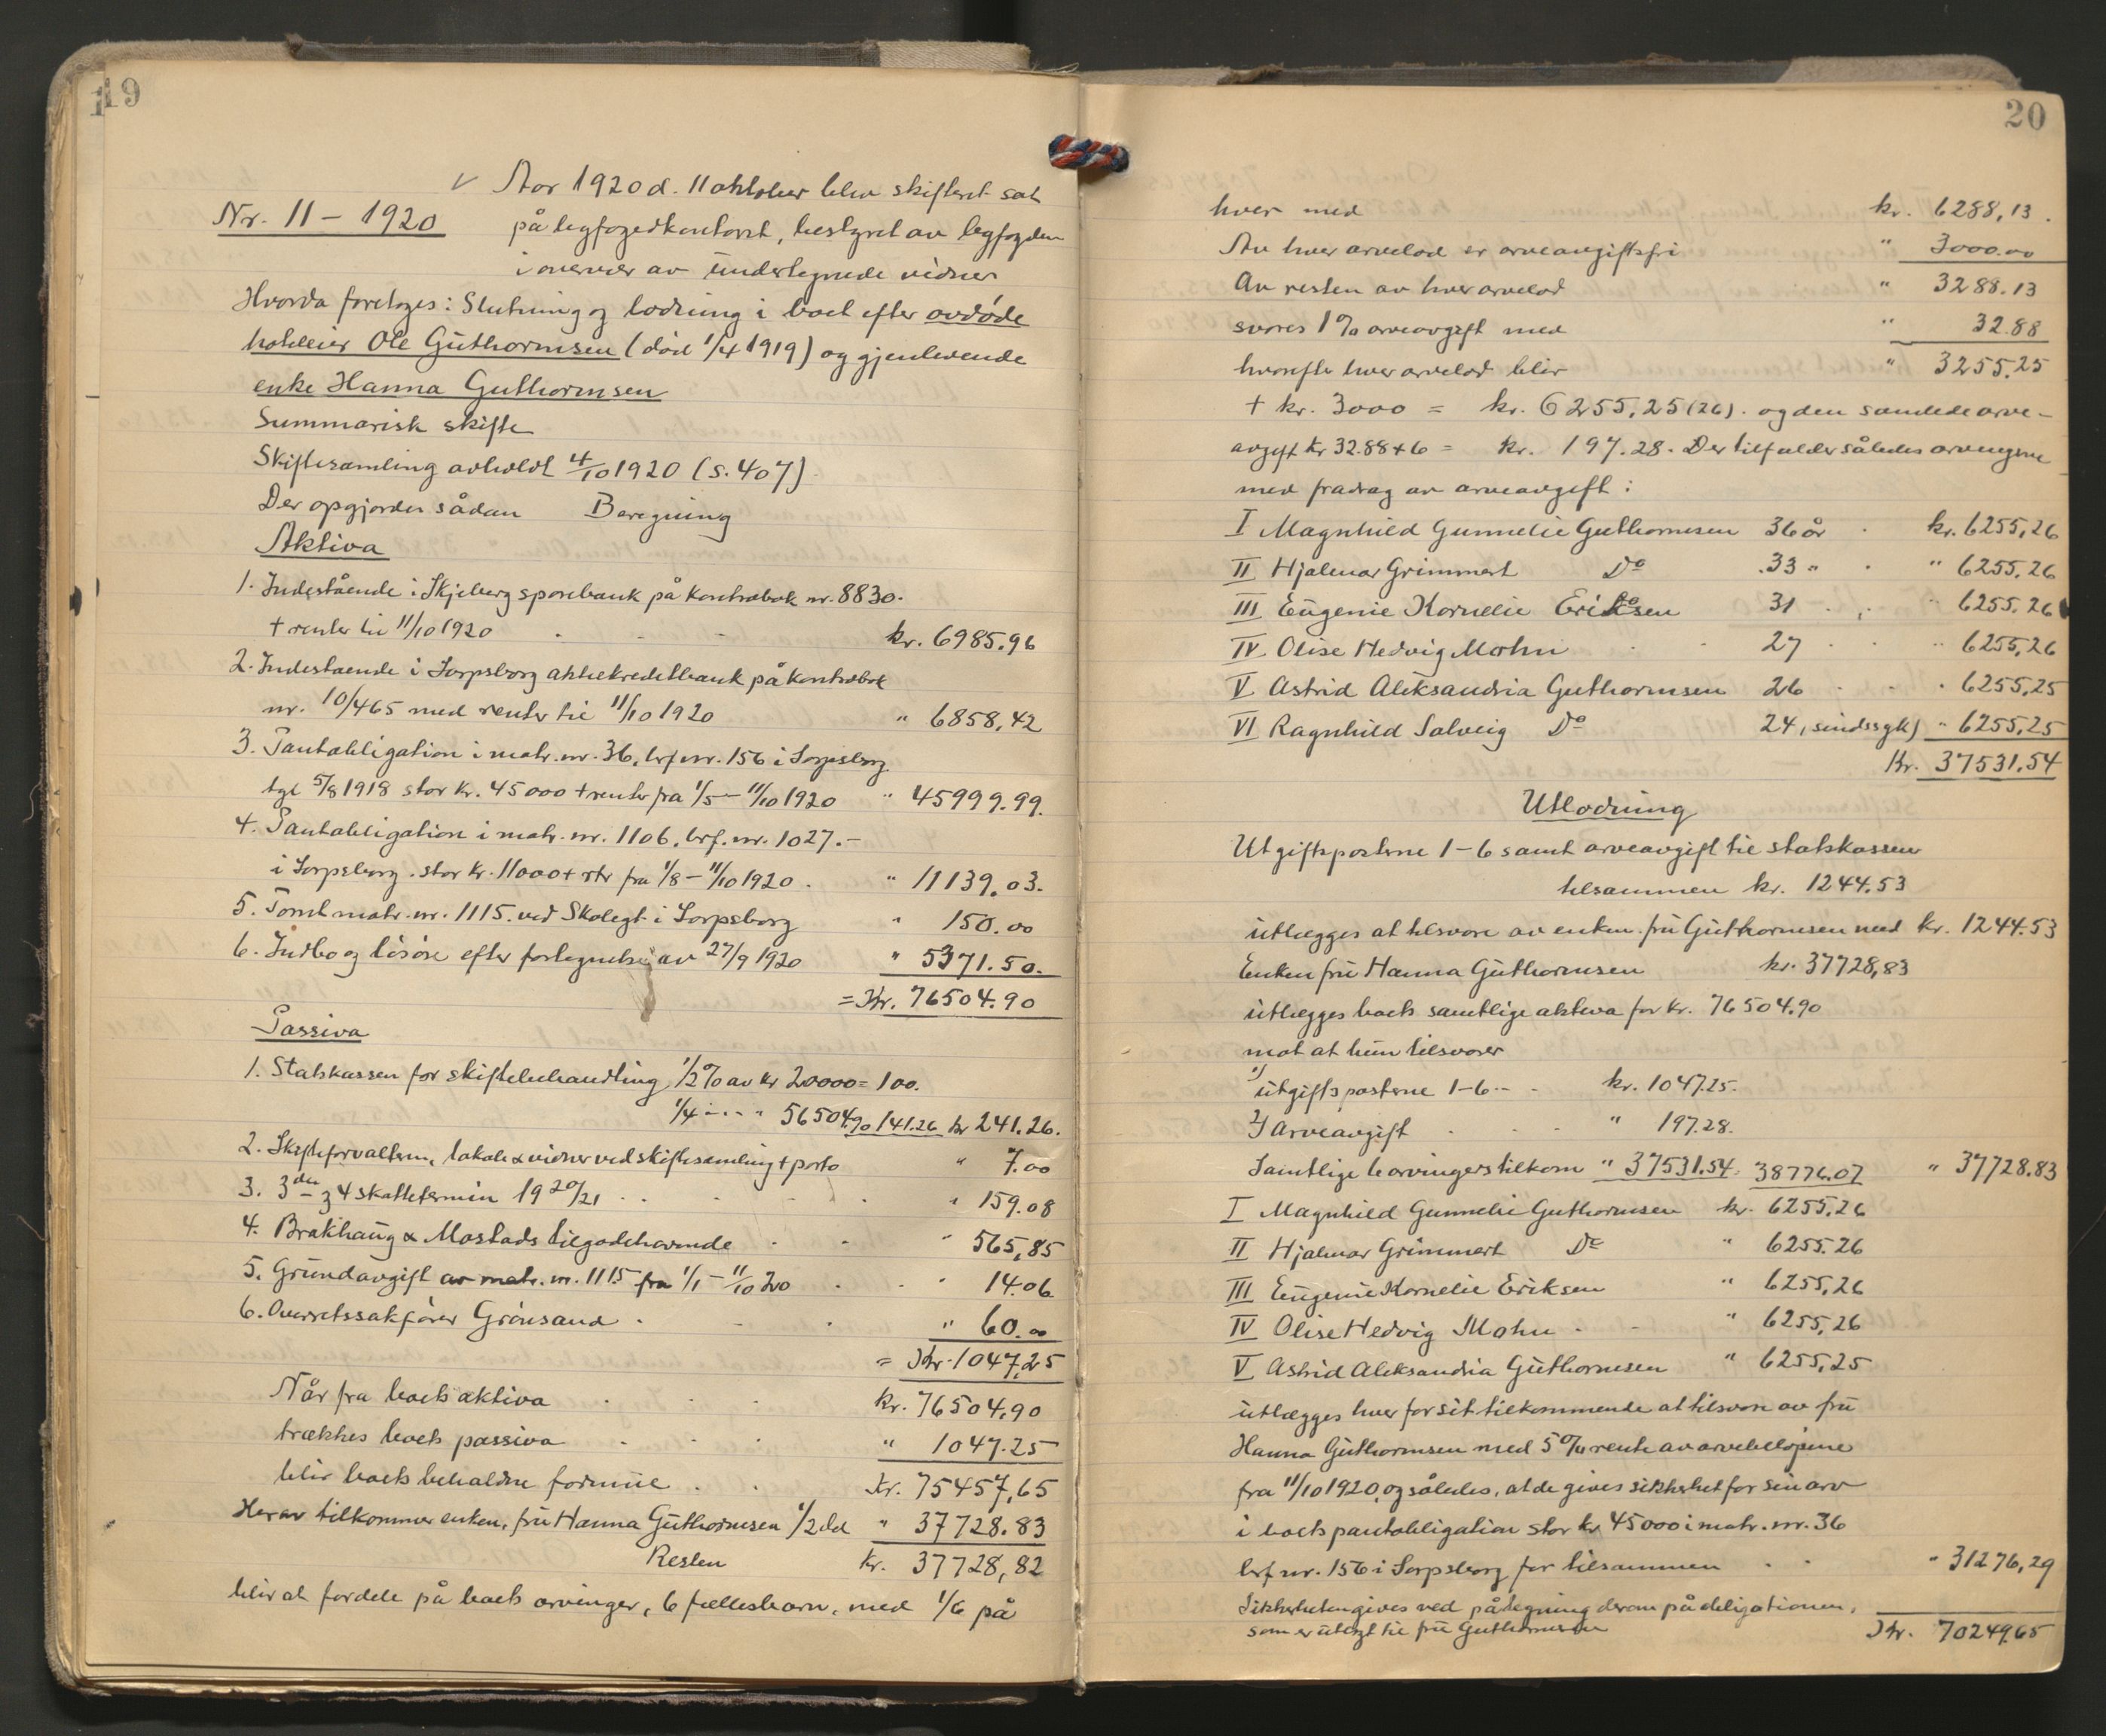 19
Nr. 11 – 1920
Aar 1920 d. 11 oktober blev skifteret sat
på byfogedkontoret, bestyret av byfogden
i overvær av undertegnede vidner
Hvorda foretoges: Slutning og lodning i boet efter avdøde
hoteleier Ole Guthormsen (död 1/4 1919) og gjenlevende
enke Hanna Guthormsen
Summarisk skifte
Skiftesamling avholdt 4/10 1920 (s. 407).
Der opgjordes sådan Beregning
Aktiva
1. Indestående i Skjeberg sparebank på kontrabok nr. 8830.
+ renter til 11/10 1920 . - - kr. 6985.96
2. Indestaende i Sarpsborg aktiekreditbank på kontrabok
nr. 10/465 med renter til 11/10 1920 " 6858,42
3. Pantobligation i matr. nr. 36, brf nr. 156 i Sarpsborg
tgl 5/8 1918 stor kr. 45000 + renter fra 1/5 – 11/10 1920 " 45999.99.
4. Pantobligation i matr. nr. 1106, brf. nr. 1027. –
i Sarpsborg. stor kr. 11000 + rtr fra 1/8 – 11/10 1920 . " 11139.03.
5. Tomt matr. nr. 1115. ved Skolegt. i Sarpsborg " 150.00
6. Indbo og lösöre efter fortegnelse av 27/9 1920 " 5371.50.
= Kr. 76504.90
Passiva
1. Statskassen for skiftebehandling 1/2 % av kr 20000 = 100.
1/4 - . - " 56504.90 141.26 kr 241.26.
2. Skifteforvalteren, lokale & vidner ved skiftesamling + porto " 7.00
3. 3die & 4 skattetermin 1920/21 . . - - . " 159.08
4. Brakhaug & Mostads tilgodehavende . - " 565,85
5. Grundavgift av matr. nr. 1115 fra 1/1 – 11/10 20 . . " 14.06
6. Overretssakförer Grönsand . - . " 60.00
= Kr. 1047,25
Når fra boets aktiva . . . kr. 76504,90
trækkes boets passiva . . . " 1047.25
blir boets beholdne formue . . Kr. 75457,65
Herav tilkommer enken, fru Hanna Guthormsen 1/2 del " 37728.83
Resten kr. 37728,82
blir at fordele på boets arvinger, 6 fællesbarn, med 1/6 på
20
hver med kr. 6288,13.
Av hver arvelod er arveavgiftsfri " 3000.00
Av resten av hver arvelod " 3288.13
svares 1% arveavgift med " 32.88
hvorefter hver arvelod blir " 3255.25
+ kr. 3000 = kr. 6255,25 (26). og den samlede arve-
avgift kr 32.88 + 6 = kr. 197.28. Der tilfalder således arvingerne
med fradrag av arveavgift :
I Magnhild Gunnelie Guthormsen 36 år . kr. 6255,26
II Hjalmar Grimmert Do 33 " . " 6255,26
III Eugenie Kornelie Eriksen 31 . . " 6255,26
IV Olise Hedvig Mohn . . 27 . . " 6255,26
V Astrid Aleksandria Guthormsen 26 . . . 6255,25
VI Ragnhild Solveig Do 24, sindssyk) " 6255,25
Kr. 37531.54
Utlodning
Utgiftsposterne 1-6 samt arveavgift til statskassen
tilsammen kr. 1244.53
utlægges at tilsvare av enken fru Guthormsen med kr. 1244.53
Enken fru Hanna Guthormsen kr. 37728,83
utlægges boets samtlige aktiva for kr. 76504.90
mot at hun tilsvarer
1) utgiftsposterne 1-6 - - . kr. 1047.25.
2) Arveavgift . . . " 197.28.
Samtlige 6 arvingers tilkom " 37531.54. 38776.07 " 37728.83
I Magnhild Gunnelie Guthormsen kr. 6255,26
II Hjalmar Grimmert Do " 6255.26
III Eugenie Kornelie Eriksen " 6255,26
IV Olise Hedvig Mohn - - " 6255,26
V Astrid Aleksandria Guthormsen " 6255,25
utlægges hver for sit tilkommende at tilsvare av fru
Hanna Guthormsen med 5% rente av arvebelöpene
fra 11/10 1920, og således, at de gives sikkerhet for sin arv
i boets pantobligation stor kr. 45000 i matr. nr. 36
brf nr. 156 i Sarpsborg for tilsammen . . " 31276,29
Sikkerheten gives ved påtegning derom på obligationen,
som er utlagt til fru Guthormsen Kr. 70249.65